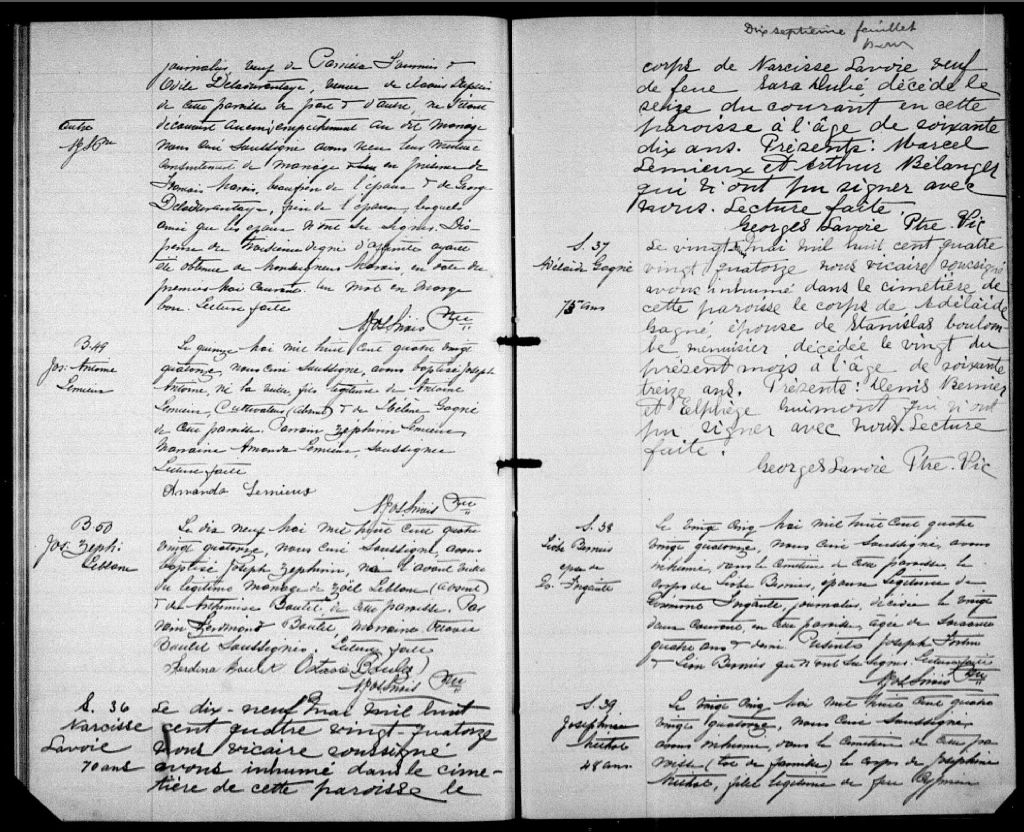 journalier, veuf de
Odile Delavoye, veuve de
de cette paroisse de part & d'autre, ne s'étant
autre
découvert aucun empêchement au dit mariage
Nous curé soussigné avons reçu leur mutuel
consentement de mariage en présence de
beaufrère de l'époux & de George
frère de l'épouse, lesquels
ainsi que les époux n'ont su signer. Dis-
pense de troisième degré d'affinité ayant
été obtenue de Monseigneur en date du
premier Mai courant. un mot en marge
bon. Lecture faite
Ptre
B. 49
Jos: Antoine
Lemieux
Le quinze Mai mil huit cent quatre vingt
quatorze, nous curé soussigné, avons baptisé Joseph
Antoine, né la veille, fils légitime de Antoine
Lemieux, Cultivateur (absent) & de Hélène Gagné
de cette paroisse. Parrain Zéphirin Lemieux,
Marraine Amanda Lemieux, soussignée
Lecture faite
Amanda Lemieux
Ptre
B. 50
Jos: Zeph:
Leblanc
Le dix neuf Mai mil huit cent quatre
vingt quatorze, nous curé soussigné, avons
baptisé Joseph Zéphirin, né l'avant veille
du légitime mariage de Noël Leblanc (absent)
& de Arthémise Boulet de cette paroisse. Par
rain Ferdinand Boulet, Marraine Octavie
Boulet soussignés. Lecture faite
Ferdina Boulet Octavie Boulet
Ptre
S. 36
Narcisse
Lavoie
70 ans
Le dix-neuf Mai mil huit
cent quatre vingt-quatorze
nous vicaire soussigné
avons inhumé dans le cime-
tière de cette paroisse le
Dix septième feuillet
corps de Narcisse Lavoie veuf
de feue Sara Dubé décédé le
seize du courant en cette
paroisse à l'âge de soixante
dix ans. Présents: Marcel
Lemieux et Arthur Bélanger
qui n'ont pu signer avec
nous. Lecture faite.
Georges Lavoie Ptre. Vic
S. 37
Adélaïde Gagné
73 ans
Le vingt Mai mil huit cent quatre
vingt quatorze nous vicaire soussigné
avons inhumé dans le cimetière de
cette paroisse le corps de Adélaïde
Gagné, épouse de Stanislas boulom-
be menuisier décédée le vingt du
présent mois à l'âge de soixante
treize ans. Présents: Denis Bernier
et Elphège Guimont qui n'ont
pu signer avec nous. Lecture
faite.
Georges Lavoie Ptre. Vic
S. 38
Bernier
épse de
Le vingt cinq Mai mil huit cent quatre
vingt quatorze, nous curé soussigné, avons
inhumé, dans le cimetière de cette paroisse, le
corps de Bernier, épouse légitime de
journalier, décédée le vingt
deux courant, en cette paroisse, agée de soixante
quatre ans & demi. Présents Joseph
& Léon Bernier qui n'ont su signer. Lecture faite
Ptre
S. 39
Joséphine
48 ans
Le vingt cinq Mai mil huit cent quatre
vingt quatorze, nous curé soussigné,
avons inhumé, dans le cimetière de cette pa
roisse (lot de famille) le corps de Joséphine
fille légitime de feu